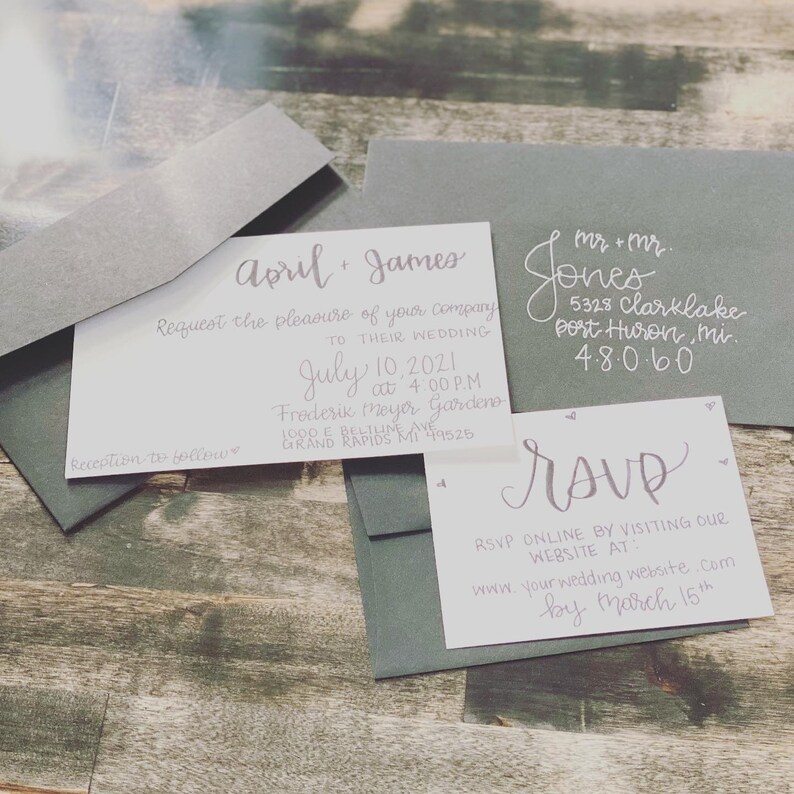 april + James
Request the pleasure of your company
TO THEIR WEDDING
July 10, 2021
at 4:00 P.M
Frederik Meyer Gardens
1000 E BELTLINE AVE
GRAND RAPIDS MI 49525
Reception to follow
mr + mr.
Jones
5328 Clarklake
port Huron, mi.
4.8.0.6.0
rsvp
RSVP ONLINE BY VISITING OUR
WEBSITE AT:
www.yourweddingwebsite.com
by march 15th